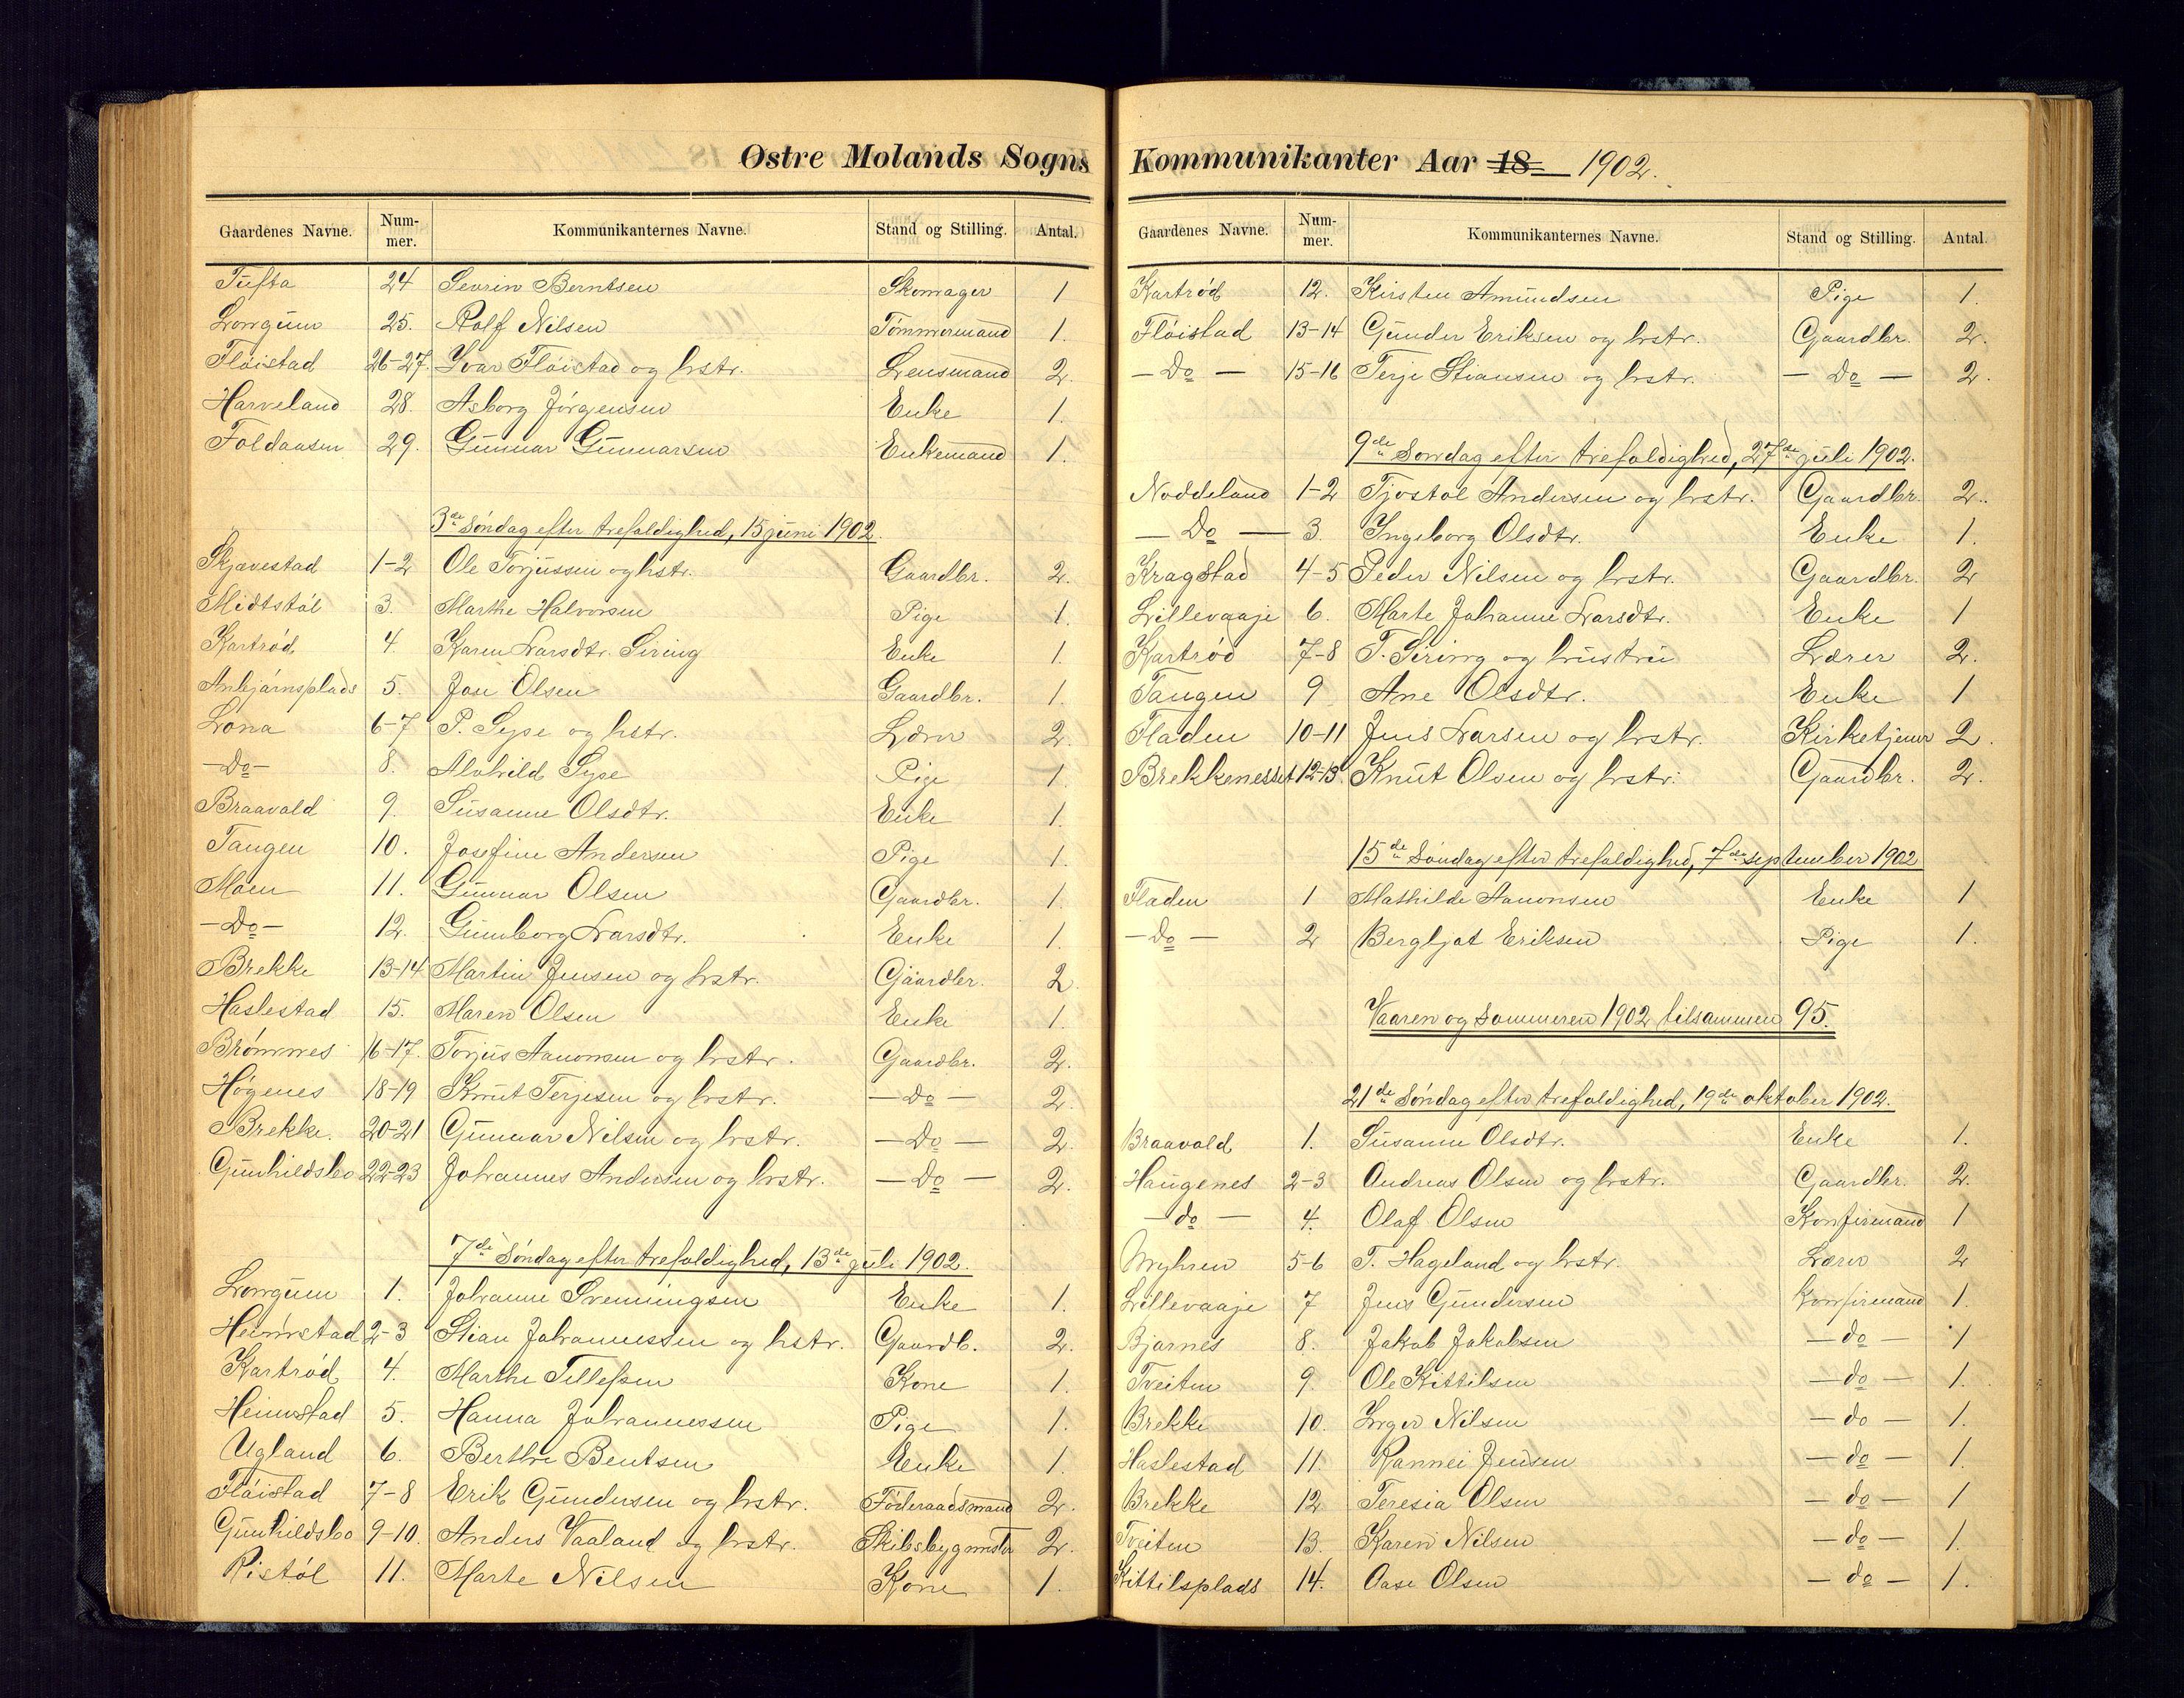 Østre Molands Sogns
Gaardenes Navne. Nummer. Kommunikanternes Navne. Stand og Stilling. Antal.
Tufta 24 Sevrin Berntsen Skomager 1
Longum 25. Rolf Nilsen Tømmermand 1.
Fløistad 26-27. Ivar Fløistad og hstr. Lensmand 2.
Harveland 28. Asborg Jørgensen Enke 1.
Foldaasen 29. Gunnar Gunnarsen Enkemand 1.
3de Søndag efter trefoldighed, 15 juni 1902.
Skjævestad 1-2 Ole Torjussen og hstr. Gaardbr. 2.
Midtstøl 3. Marthe Halvorsen Pige 1.
Kartrød 4. Karen Larsdtr. Siring Enke 1.
Anbjørnsplads 5. Jose Olsen Gaardbr. 1.
Lona 6-7 P. Sype og hstr. Lærer 2.
-Do- 8. Alvhild Sype Pige 1.
Braavold 9. Susanne Olsdtr. Enke 1.
Tangen 10. Josefine Andersen Pige 1.
Moen 11. Gunnar Olsen Gaardbr. 1.
-Do- 12. Gunborg Larsdtr. Enke 1.
Brekke 13-14 Martin Jensen og hstr. Gaardbr. 2.
Haslestad 15. Maren Olsen Enke 1.
Brømnes 16-17. Torjus Aanonsen og hstr. Gaardbr. 2.
Høgenes 18-19 Knut Terjesen og hstr. -Do- 2.
Brekke. 20-21 Gunnar Nilsen og hstr. -Do- 2.
Gunhildsbo 22-23 Johannes Andersen og hstr. -Do- 2.
7de Søndag efter trefoldighed, 13de juli 1902.
Longum 1. Johanne Svenningsen Enke 1.
Heimstad 2-3 Stian Johannessen og hstr. Gaardb. 2.
Kartrød 4. Marthe Tellefsen Kone 1.
Heimstad 5. Hanna Johannessen Pige 1.
Ugland 6. Berthe Bentsen Enke 1.
Fløistad 7-8 Erik Gundersen og hstr. Føderaadsmand 2.
Gunhildsbo 9-10. Anders Vaaland og hstr. Skibsbygmester 2.
Ristøl 11. Marte Nilsen Kone 1.
Kommunikanter Aar 18 1902.
Gaardenes Navne. Nummer. Kommunikanternes Navne. Stand og Stilling. Antal.
Kartrød 12. Kirsten Amundsen Pige 1.
Fløistad 13-14 Gunder Eriksen og hstr. Gaardbr. 2.
-Do- 15-16 Terje Stiansen og hstr. -Do- 2.
9de Søndag efter trefoldighed, 27de juli 1902.
Noddeland 1-2 Tjostøl Andersen og hstr. Gaardbr. 2.
-Do- 3. Ingeborg Olsdtr. Enke 1.
Kragstad 4-5 Peder Nilsen og hstr. Gaardbr. 2
Lillevaaje 6. Marte Johanne Larsdtr. Enke 1
Kartrød 7-8 T. Siring og hustru Lærer 2.
Tangen 9 Ane Olsdtr. Enke 1
Fladen 10-11 Jens Larsen og hstr. Kirketjener 2.
Brekkenesset 12-13. Knut Olsen og hstr. Gaardbr. 2.
15de Søndag efter trefoldighed, 7de september 1902
Fladen 1 Mathilde Aanonsen Enke 1
-do- 2 Bergljot Eriksen Pige 1.
Vaaren og Sommeren 1902 tilsammen 95.
21de Søndag efter trefoldighed, 19de oktober 1902.
Braavold 1. Susanne Olsdtr. Enke 1.
Haugenes 2-3 Andreas Olsen og hstr. Gaardbr. 2.
-do- 4. Olaf Olsen Konfirmand 1
Myhren 5-6 T. Hageland og hstr. Lærer 2
Lillevaaje 7 Jens Gundersen Konfirmand 1.
Bjørnes 8. Jakob Jakobsen -do- 1
Tveiten 9. Ole Kittilsen -do- 1.
Brekke 10. Inger Nilsen -do- 1.
Haslestad 11. Rannei Jensen -do- 1.
Brekke 12 Teresia Olsen -do- 1
Tveiten 13. Karen Nilsen -do- 1.
Kittilsplads 14. Aase Olsen -do- 1.